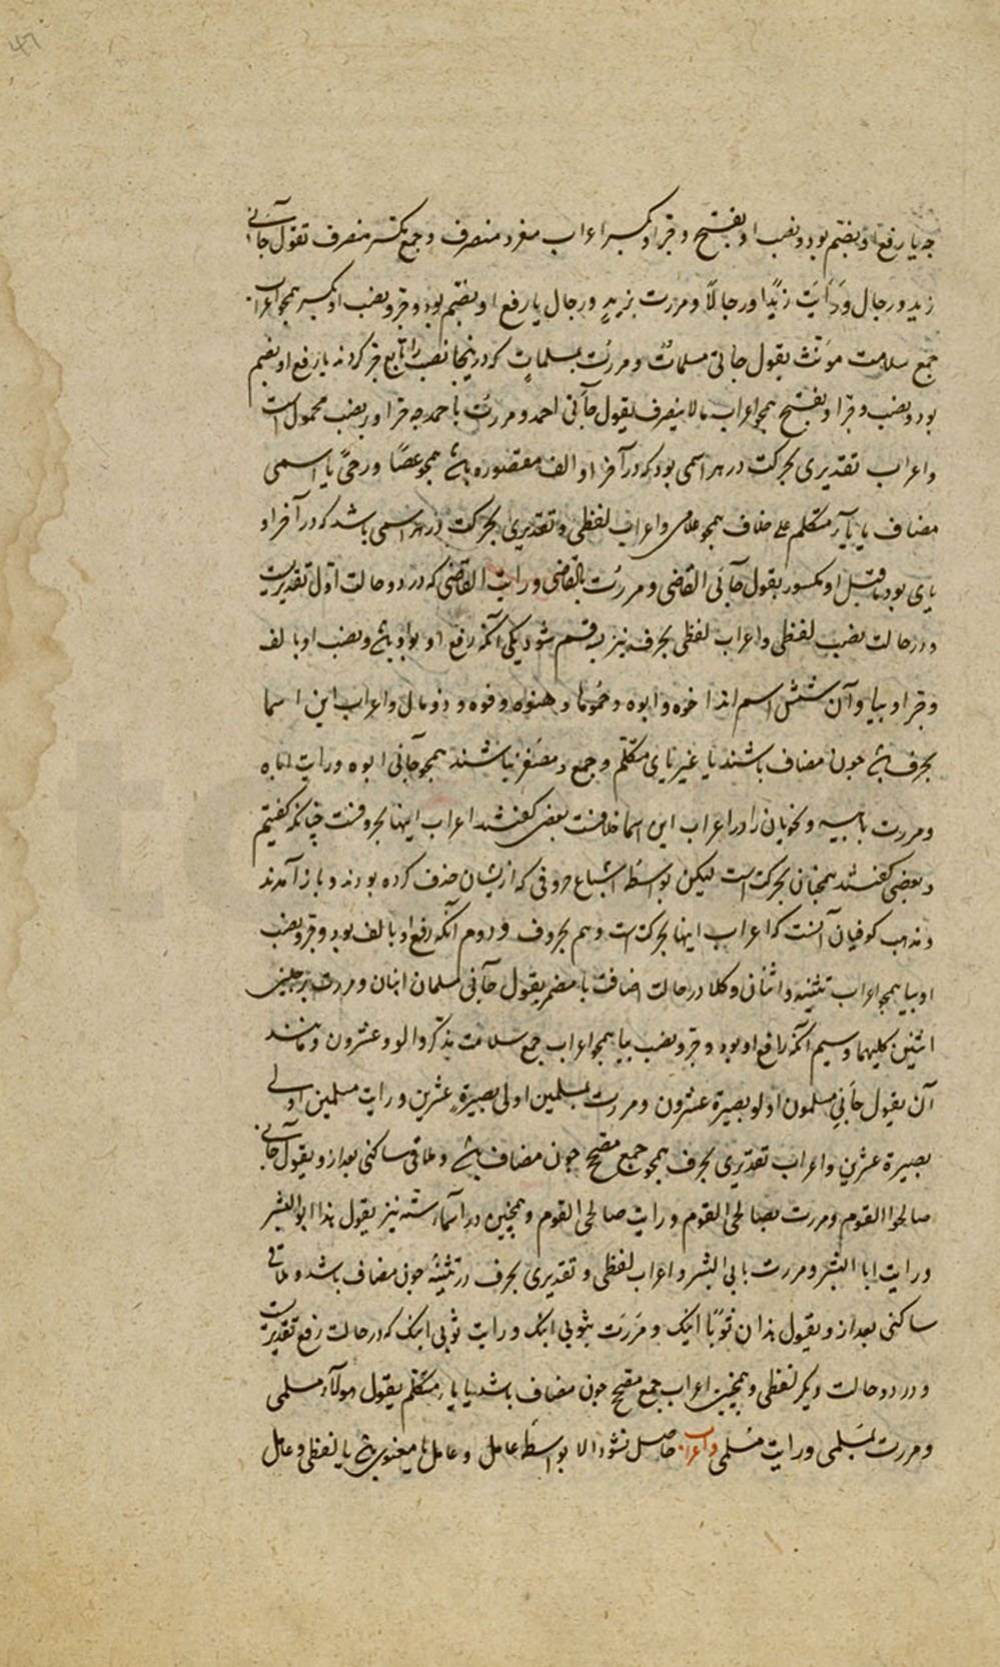 چه یا رفع او بضم بود و نصب او بفتح و جر او بکسر اعراب مفرد منصرف و جمع مکسر منصرف تقول جآنی
زید و رجال و رَاَیتَ زیدًا و رجالًا و مررت بزیدٍ و رجال یا رفع او بضم بود و جر و نصب او بکسر همچو اعراب
جمع سلامت مونث یقول جانی مسلماتٌ و مررت بمسلماتٍ که درینجا نصب را تابع جر کردند یا رفع او بضم
بود و نصب و جر او بفتح همچو اعراب مالا ینصرف یقول جآنی احمد و مررت باحمد چه جر او بر نصب محمول است
و اعراب تقدیری بحرکت در هر اسمی بود که در آخر او الف مقصوره باشد همچو عصًا و رحیً یا اسمی
مضاف یا بیآء متکلم علی خلاف همچو غلامی و اعراب لفظی و تقدیری بحرکت در هر اسمی باشد که در آخر او
یای بود ما قبل او مکسور یقول جآنی القاضی و مررت بالقاضی و رایت القاضی که در دو حالت اول تقدیریست
و در حالت نصب لفظی و اعراب لفظی بحرف نیز بسه قسم شود یکی آنکه رفع او بواو باشد و نصب او بالف
و جر او بیا و آن شش اسم اند اخوه و ابوه و حموها و هنوه و فوه و ذو مال و اعراب این اسما
بحرف باشد چون مضاف باشند یا غیر یای متکلم و جمع و مصغر نباشند همچو جآنی ابوه و رایت اباه
و مررت بابیه و نحویان را در اعراب این اسما خلافست بعضی گفتند اعراب اینها بحروفست چنانکه گفتیم
و بعضی گفتند همچنان بحرکت است لیکن بواسطهٔ اشباع حروفی که ازیشان حذف کرده بودند و باز آمدند
و مذهب کوفیان آنست که اعراب اینها بحرکت است و هم بحروف و دوم آنکه رفع او بالف بود و جر و نصب
او بیا همچو اعراب تثنیه و اثنان و کلا در حالت اضافت با مضمر یقول جآنی مسلمان اثنان و مررت برجلین
اثنین کلیهما و سیم آنکه رفع او بود و جر و نصب بیا همچو اعراب جمع سلامت مذکر و الو و عشرون و مانند
آن یقول جآنی مسلمون اولو بصیرة عشرون و مررت بمسلمین اولی بصیرة عشرین و رایت مسلمین اولی
بصیرة عشرین و اعراب تقدیری بحرف همچو جمع مصحح چون مضاف باشد و ملاقی ساکنی بعد ازو یقول جآنی
صالحوا القوم و مررت بصالحی القوم و رایت صالحی القوم و همچنین در اسماء سته نیز یقول هذا ابو البشر
و رایت ابا البشر و مررت بابی البشر و اعراب لفظی و تقدیری بحرف در تثنیه چون مضاف باشد و ملاقی
ساکنی بعد ازو یقول هذان ثوبا ابنک و مررت بثوبی ابنک و رایت ثوبی ابنک که در حالت رفع تقدیریست
و در دو حالت دیگر لفظی و همچنین اعراب جمع مصحح چون مضاف باشد بیاء متکلم یقول هولآء مسلمی
و مررت بمسلمی و رایت مسلمی و اعراب حاصل نشود الا بواسطهٔ عامل و عامل یا معنوی باشد یا لفظی و عامل